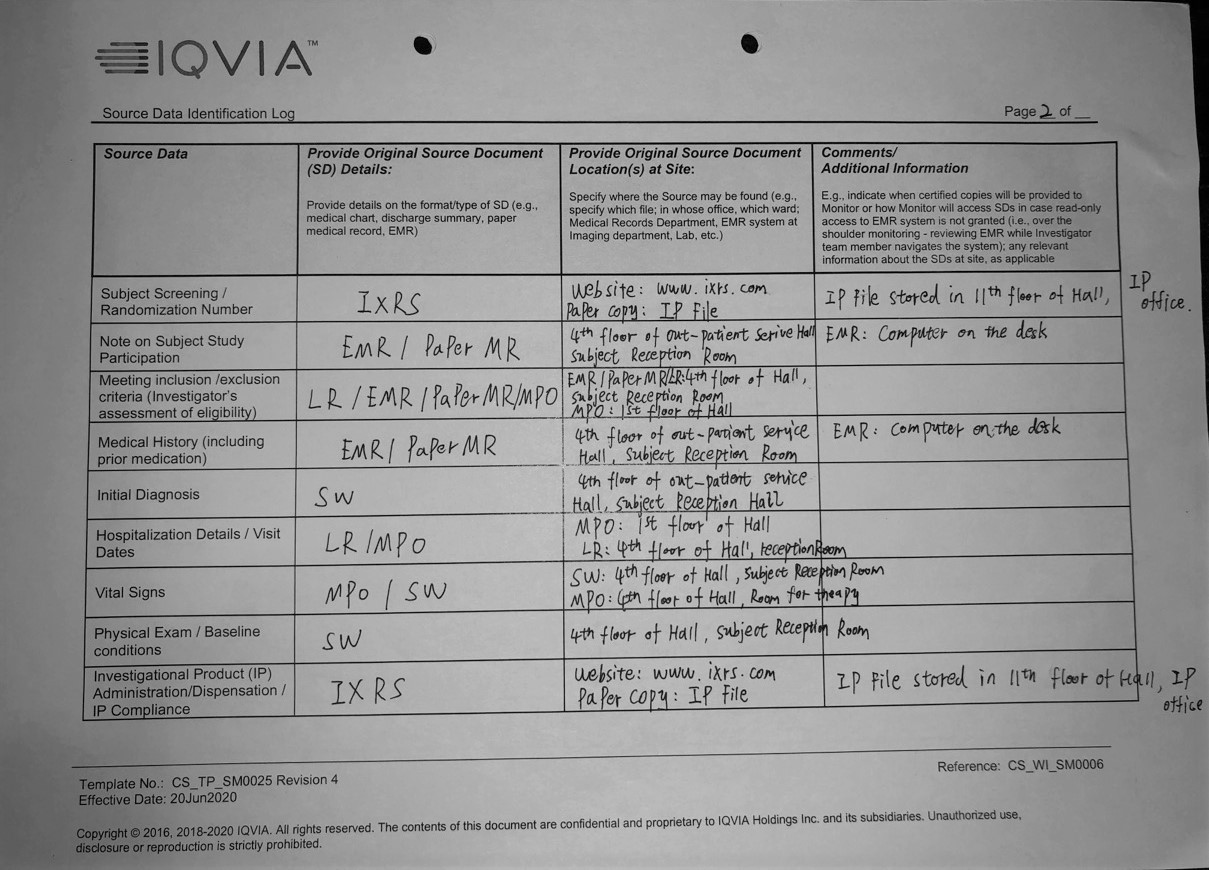 IQVIA™
Source Data Identification Log
Page 2 of __
Source Data
Provide Original Source Document
(SD) Details:
Provide details on the format/type of SD (e.g.,
medical chart, discharge summary, paper
medical record, EMR)
Provide Original Source Document
Location(s) at Site:
Specify where the Source may be found (e.g.,
specify which file; in whose office, which ward;
Medical Records Department, EMR system at
Imaging department, Lab, etc.)
Comments/
Additional Information
E.g., indicate when certified copies will be provided to
Monitor or how Monitor will access SDs in case read-only
access to EMR system is not granted (i.e., over the
shoulder monitoring - reviewing EMR while Investigator
team member navigates the system); any relevant
information about the SDs at site, as applicable
Subject Screening /
Randomization Number
IXRS
Website: www.ixrs.com
Paper copy: IP File
IP File stored in 11th floor of Hall, IP
office.
Note on Subject Study
Participation
EMR / Paper MR
4th floor of out-patient serive Hall
Subject Reception Room
EMR: Computer on the desk
Meeting inclusion /exclusion
criteria (Investigator's
assessment of eligibility)
LR / EMR / Paper MR/MPO
EMR/Paper MR/LR:4th floor of Hall,
Subject Reception Room
MPO: 1st floor of Hall
Medical History (including
prior medication)
EMR/ Paper MR
4th floor of out-patient service
Hall, Subject Reception Room
EMR: Computer on the desk
Initial Diagnosis
SW
4th floor of out-patient service
Hall, Subject Reception Hall
Hospitalization Details / Visit
Dates
LR /MPO
MPO: 1st floor of Hall
LR: 4th floor of Hall, reception Room
Vital Signs
MPO / SW
SW: 4th floor of Hall, Subject Reception Room
MPO: 4th floor of Hall, Room for theapy
Physical Exam / Baseline
conditions
SW
4th floor of Hall, Subject Reception Room
Investigational Product (IP)
Administration/Dispensation /
IP Compliance
IXRS
Website: www.ixrs.com
Paper copy: IP File
IP File stored in 11th floor of Hall, IP
office
Template No.: CS_TP_SM0025 Revision 4
Effective Date: 20Jun2020
Reference: CS_WI_SM0006
Copyright © 2016, 2018-2020 IQVIA. All rights reserved. The contents of this document are confidential and proprietary to IQVIA Holdings Inc. and its subsidiaries. Unauthorized use,
disclosure or reproduction is strictly prohibited.